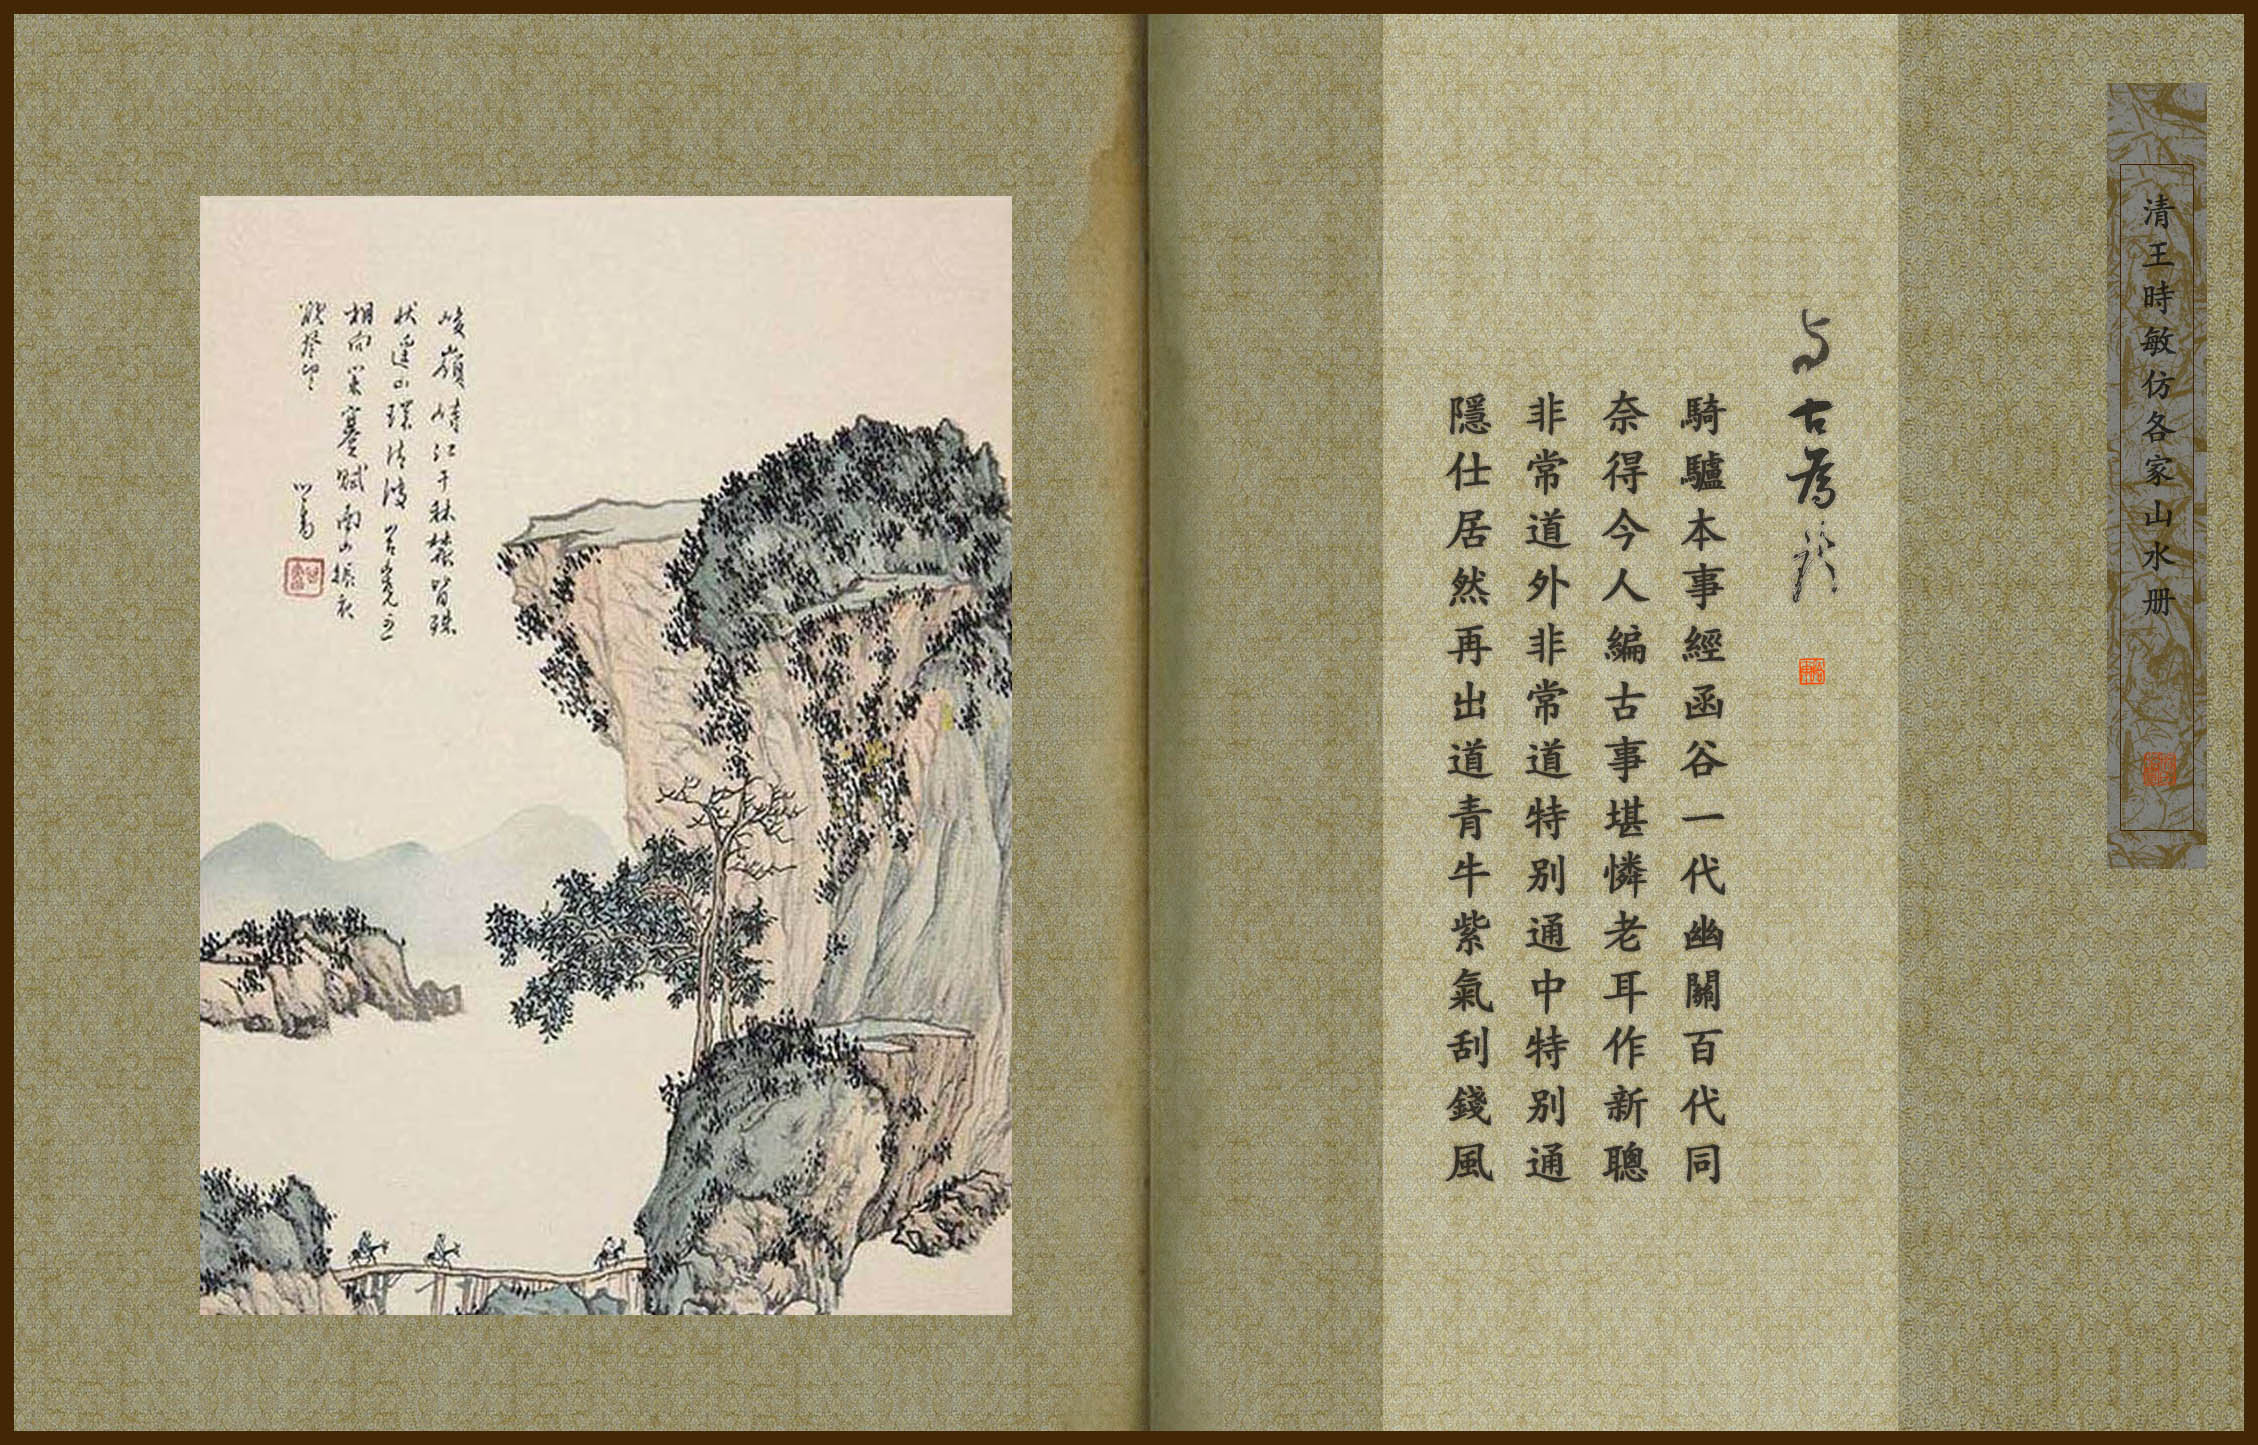 清王時敏仿各家山水册
与古為
騎驢本事經函谷一代幽關百代同
奈得今人編古事堪憐老耳作新聰
非常道外非常道特別通中特別通
隱仕居然再出道青牛紫氣刮錢風
峻嶺峙江干林叢皆
狀遠山環清波
相向 蹇賦南山振衣
心畬